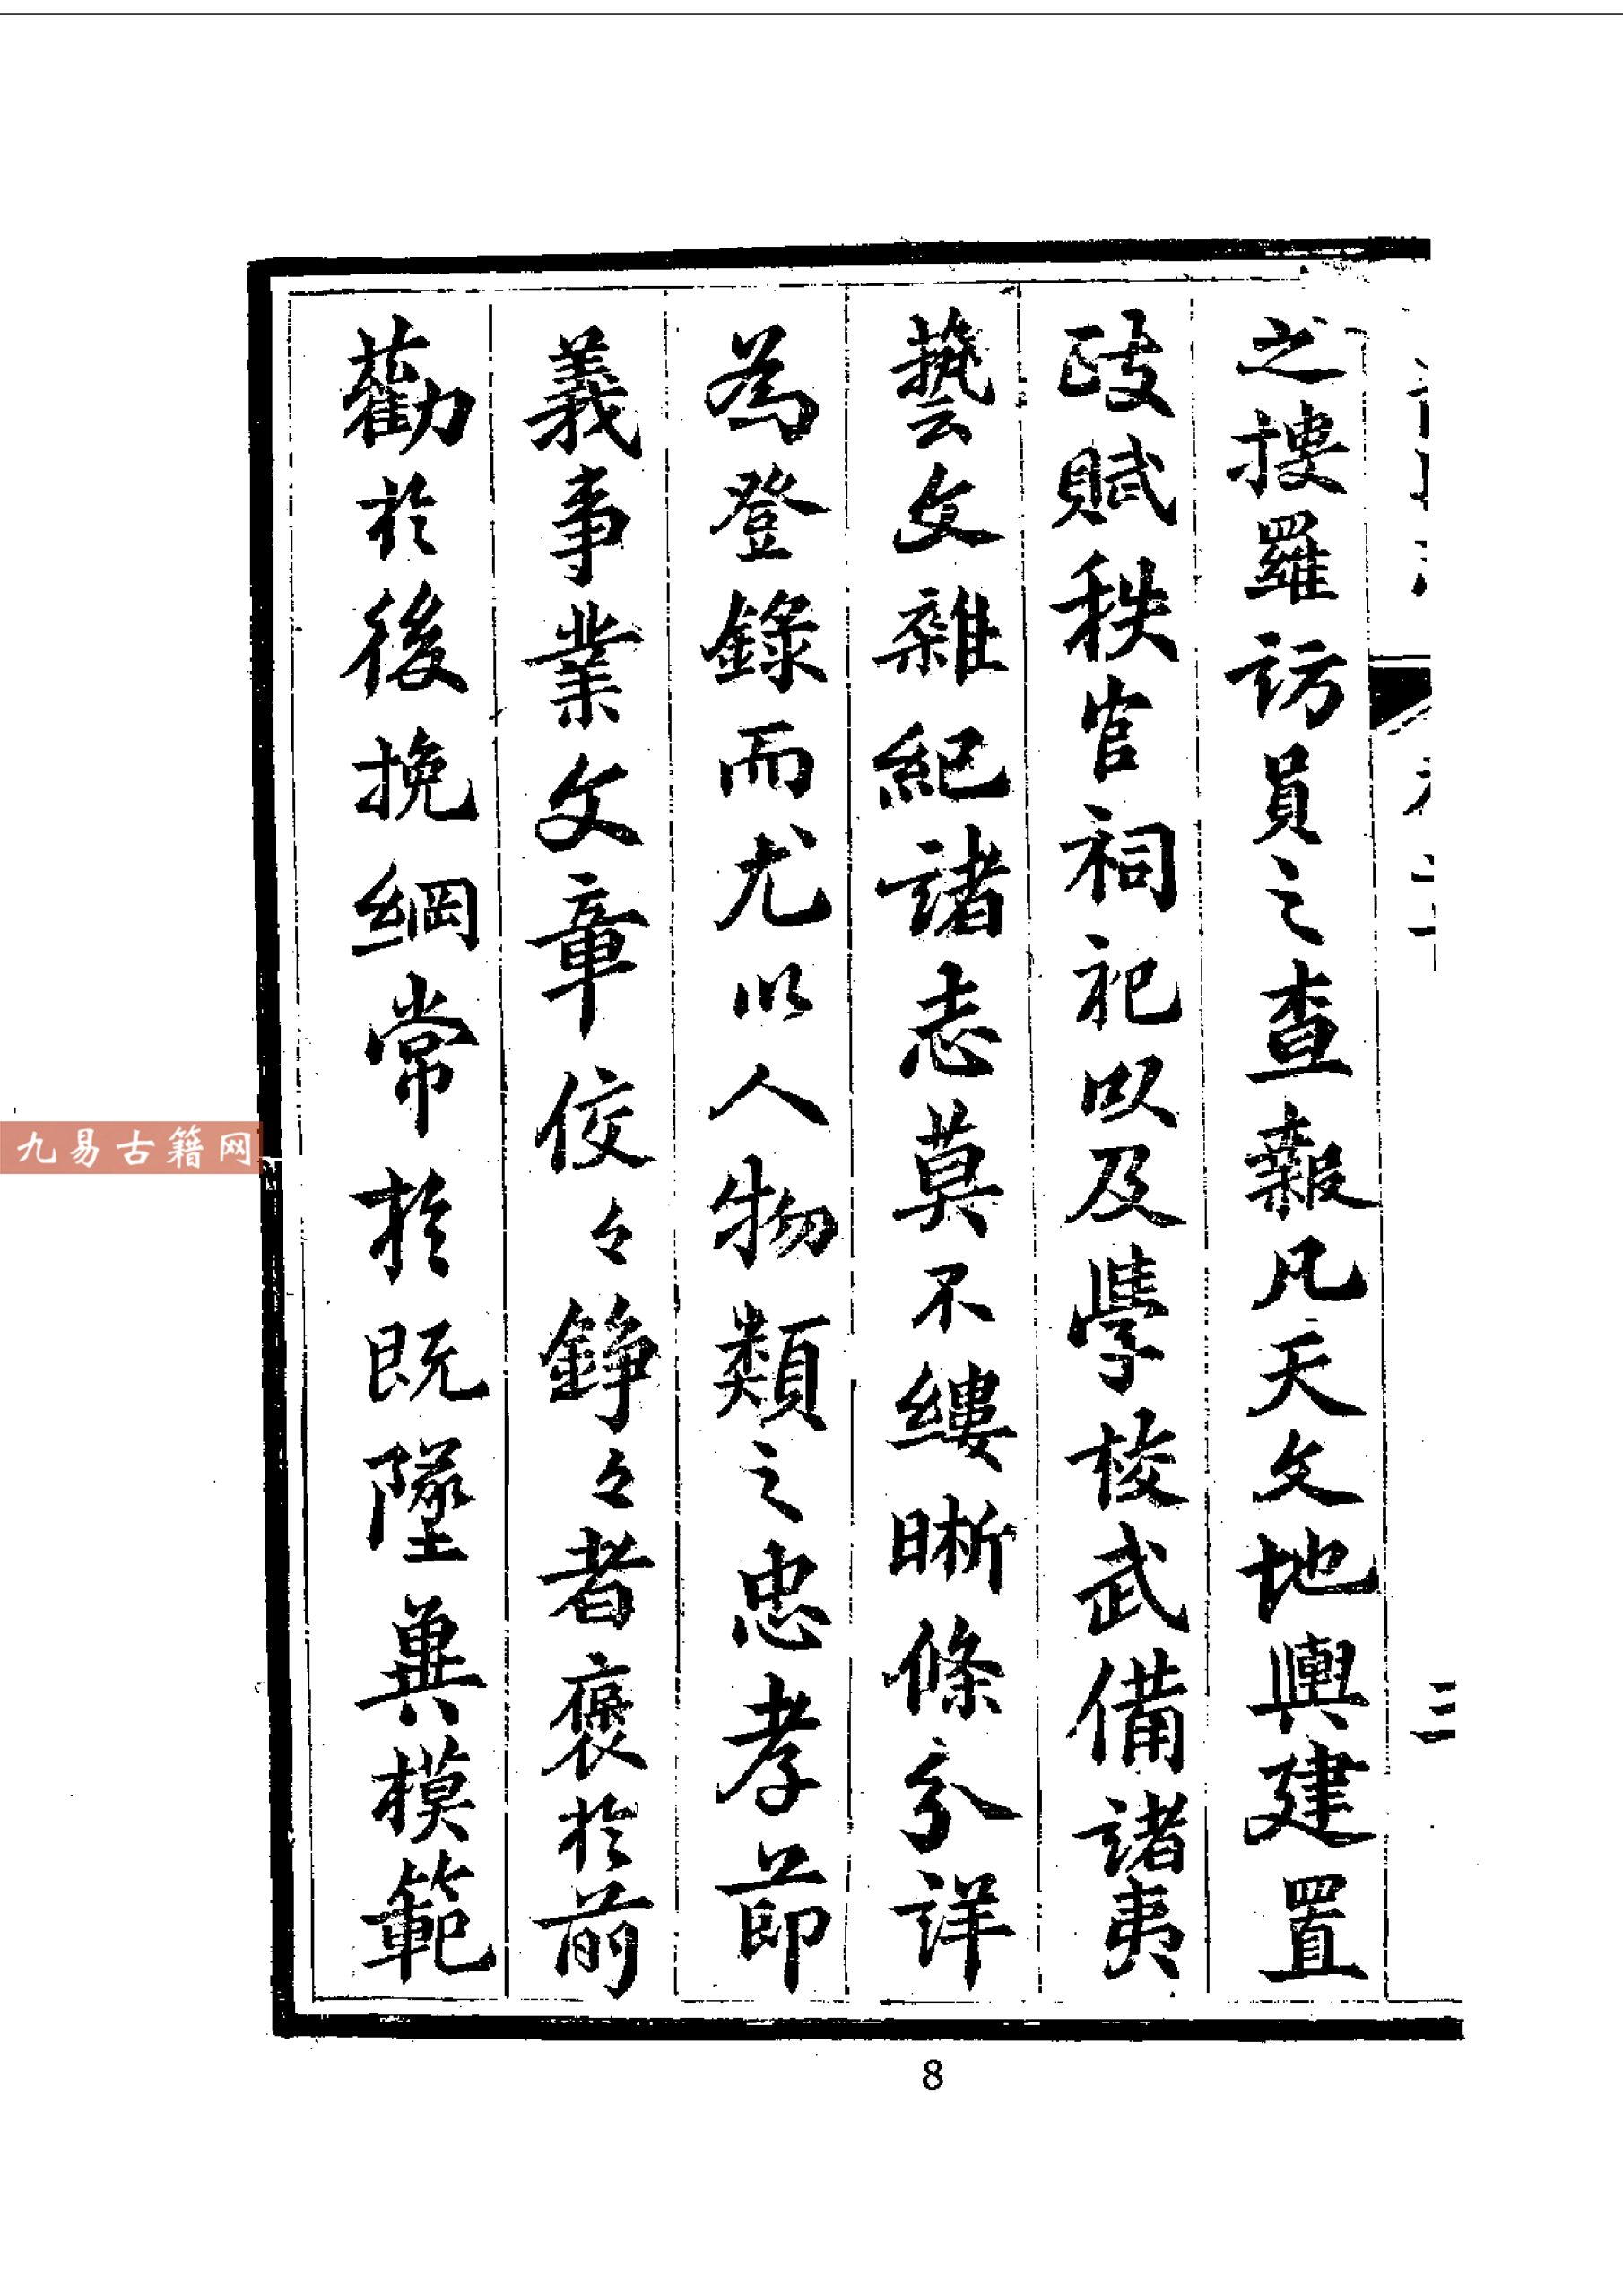 之摟羅訪員之查報凡天文地輿建置
政賦秩官祠祀以及學校武備諸夷
藝文雜紀諸志莫不縷晰條分詳
為登錄而尤以人物類之忠孝節
義事業文章佼々錚々者褒於前
勸於後挽綱常於既墜冀模範
三
九易古籍网
8